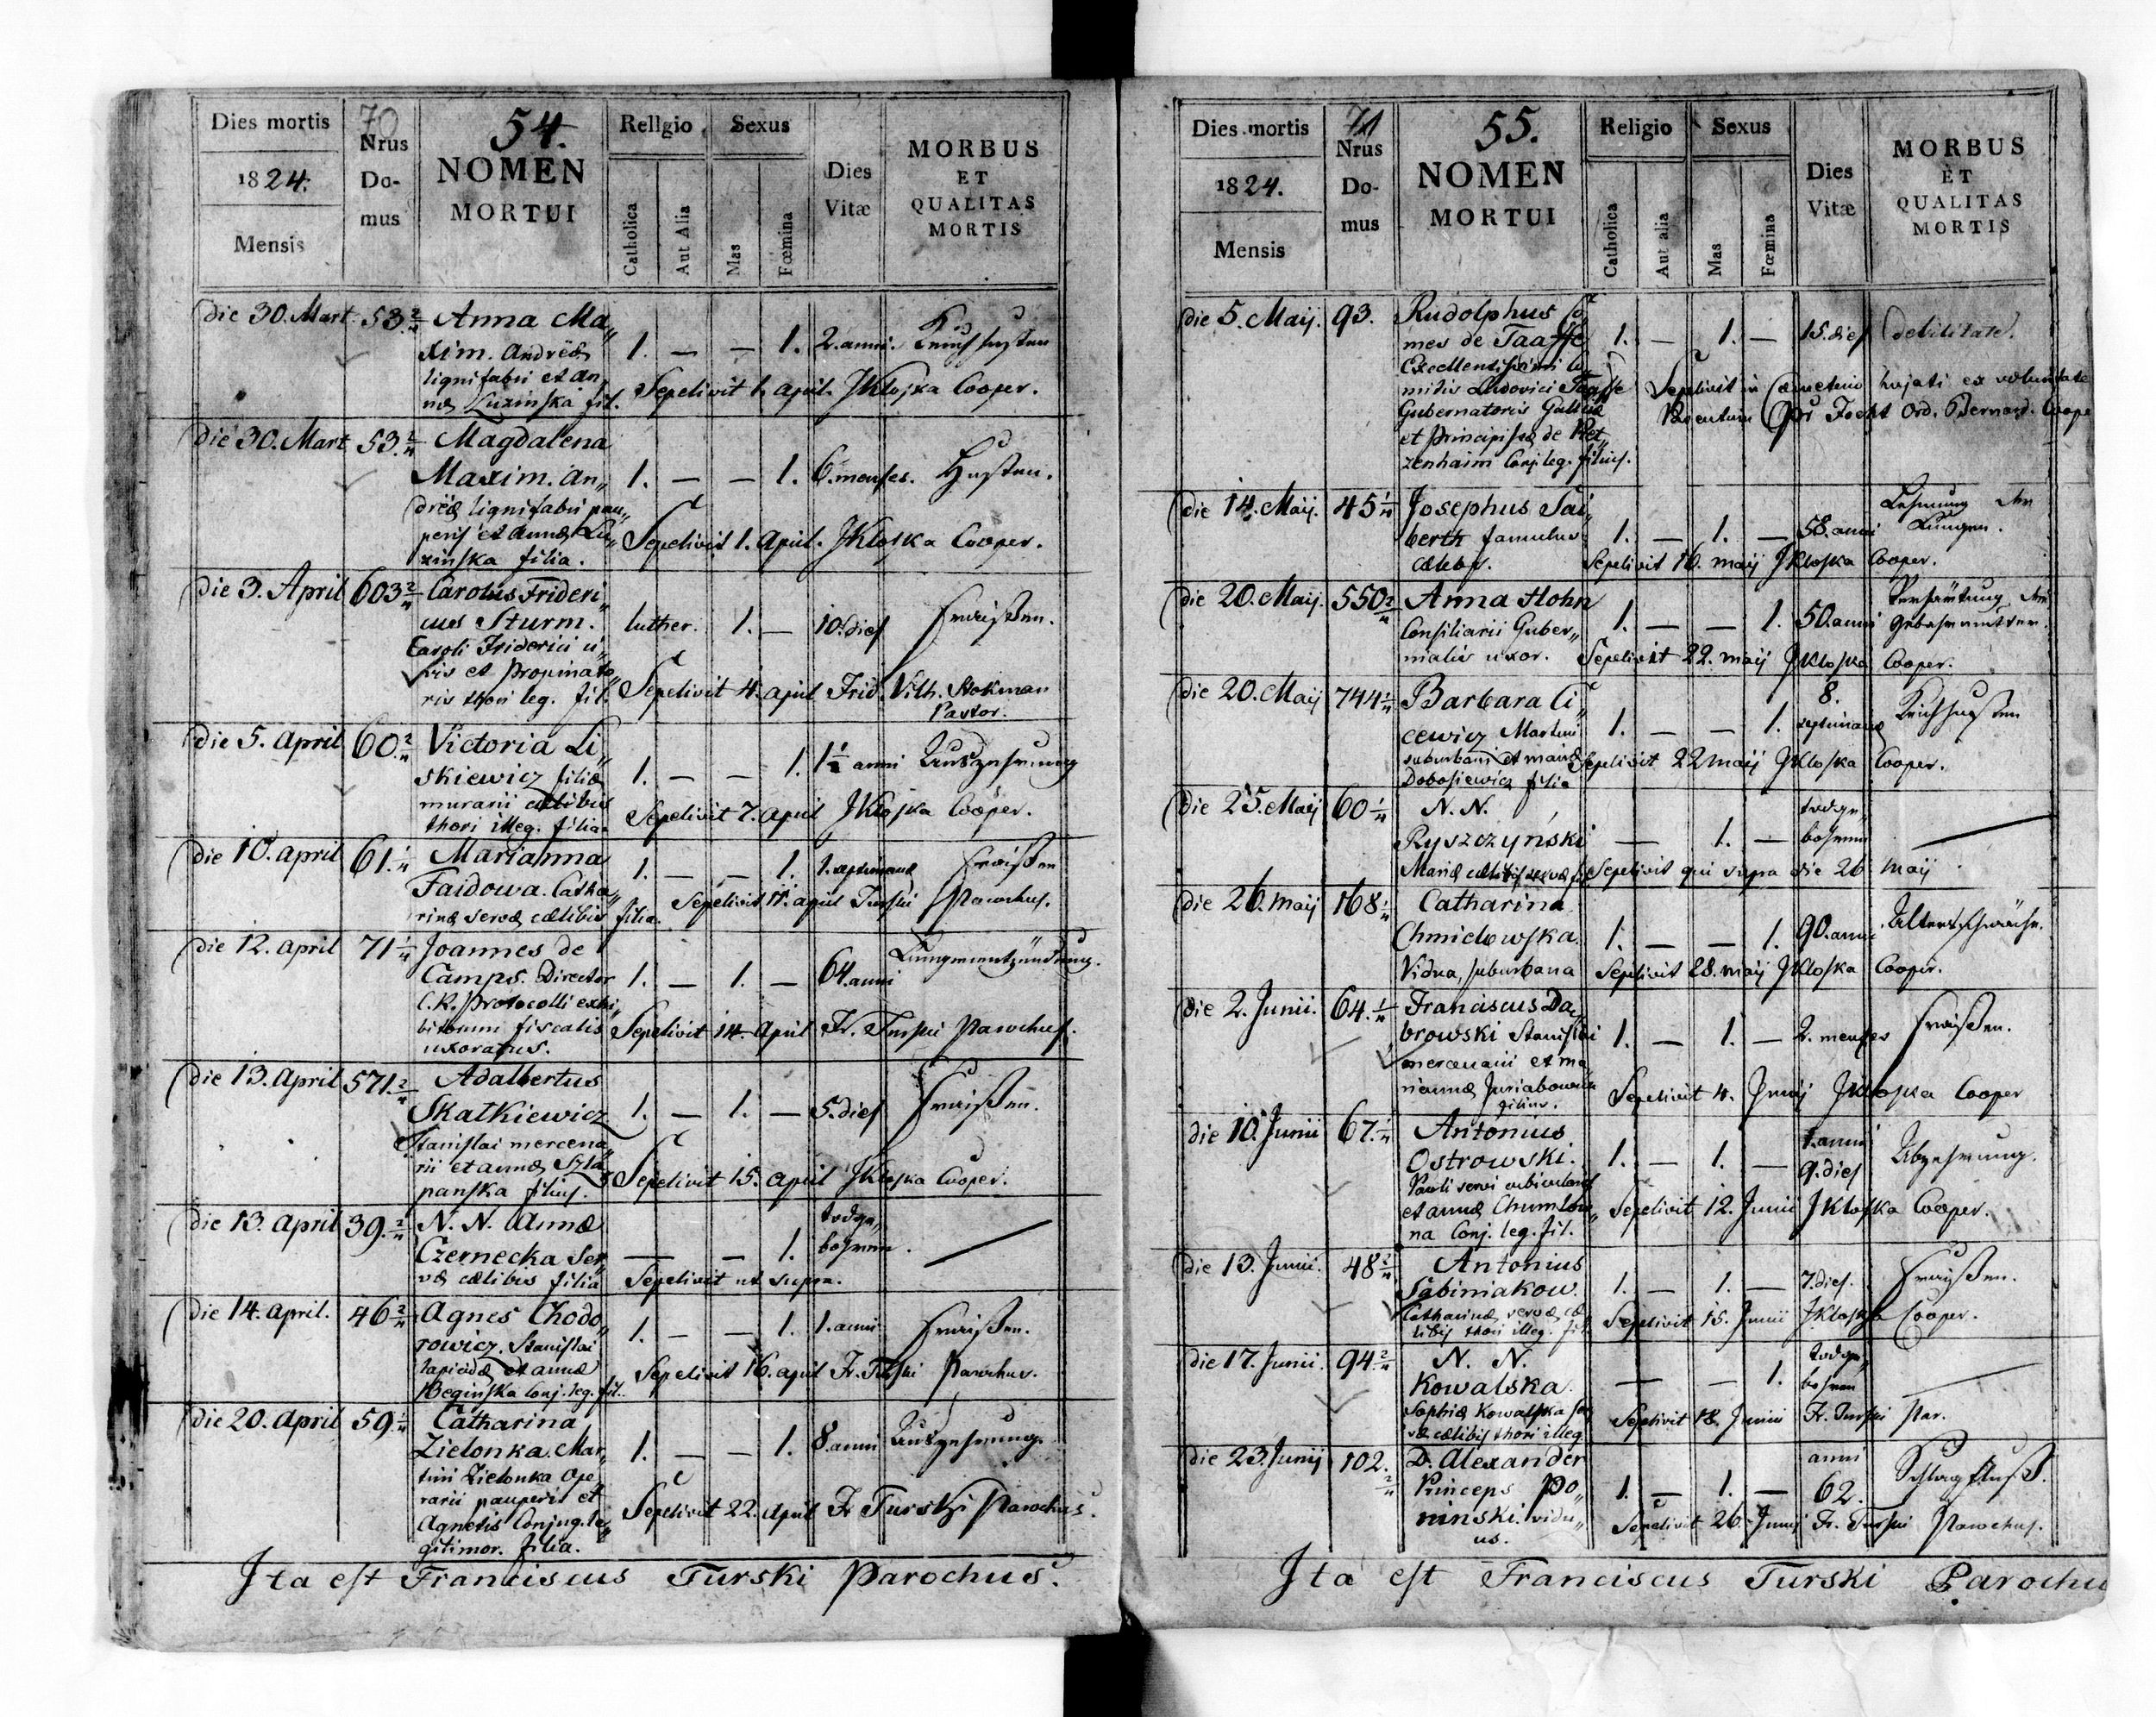 Dies mortis
1824.
Mensis
70
Nrus
Do-
mus
54.
NOMEN
MORTUI
Religio
Catholica
Aut Alia
Sexus
Mas
Fœmina
Dies
Vitæ
MORBUS
ET
QUALITAS
MORTIS
die 30. Mart. 53. 2/4 Anna Ma„
xim. Andreæ
lignifabri et An„
næ Luzinska fil.
1. — — 1. 2. anni. Keuchhusten
Sepelivit 1. April. JKloska Cooper.
die 30. Mart 53. 2/4 Magdalena
Maxim. An„
dreæ lignifabri pau„
peris et Annæ Lu„
zinska filia.
1. — — 1. 6. menses. Husten.
Sepelivit 1. April. JKloska Cooper.
die 3. April 603 2/4 Carolus Frideri„
cus Sturm.
Caroli Friderici
ris et propinato„
ris thori leg. fil.
luther. 1. — 10. dies Fraißen.
Sepelivit 4. april Frid. Vilh. Stokman
Pastor.
die 5. April 60. 2/4 Victoria Li„
skiewicz filiæ
murarii cælibis
thori illeg. filia.
1. — — 1. 1 1/2 anni Auszehrung
Sepelivit 7. april JKloska Cooper.
die 10. april 61. 1/4 Marianna
Faidowa. Catha„
rinæ servæ cælibis filia.
1. — — 1. 1. septimanæ Fraißen
Sepelivit 11. april Turski Parochus.
die 12. april 71 1/4 Joannes de
Camps. Director
C. R. Protocolli exhi„
bitorum fiscalis
uxoratus.
1. — 1. — 64. anni Lungenentzündung.
Sepelivit 14. April Fr. Turski Parochus.
die 13. April 571. 2/4 Adalbertus
Skatkiewicz
Stanislai mercena„
rii et annæ Szla
panska filius.
1. — 1. — 5. dies Fraißen.
Sepelivit 15. april JKloska Cooper.
die 13. april 39. 2/4 N. N. Annæ
Czernecka Ser„
væ cælibis filia
— — 1. todge„
bohrnen. —
Sepelivit ut supra.
die 14. april. 46 2/4 Agnes Chodo„
rowicz. Stanislai
lapicidæ et annæ
Beginska Conj. leg. fil.
1. — — 1. 1. anni Fraißen.
Sepelivit 16. april Fr. Turski Parochus.
die 20. April 59. 1/4 Catharina
Zielonka. Mar„
tini Zielonka Ope„
rarii pauperis et
Agnetis Conjug. le„
gitimor. filia.
1. — — 1. 8. anni Auszehrung.
Sepelivit 22. April Fr Turski Parochus.
Ita est Franciscus Turski Parochus.
Dies mortis
1824.
Mensis
71
Nrus
Do-
mus
55.
NOMEN
MORTUI
Religio
Catholica
Aut alia
Sexus
Mas
Fœmina
Dies
Vitæ
MORBUS
ET
QUALITAS
MORTIS
die 5. Maij. 93. Rudolphus Co„
mes de Taaffe
Excellentissimi Co„
mitis Ludovici Taaffe
Gubernatoris Galliciæ
et Principissæ de Bret„
zenhaim Conj. leg. filius.
1. — 1. — 15. dies debilitate.
Sepelivit in Cæmeterio hujati ex voluntate
Parentum Ord. Bernard. Coope
die 14. Maij. 45 1/4 Josephus Sai„
berth famulus
cælebs.
1. — 1. — 58. anni Lähmung der
Lungen.
Sepelivit 16. maij JKloska Cooper.
die 20. Maij. 550 2/4 Anna Hohn
Consiliarii Guber„
nialis uxor.
1. — — 1. 50. anni Verhärtung der
Gebährmutter.
Sepelivit 22. maij JKloska Cooper.
die 20. Maij 744 1/4 Barbara Ci„
cewicz Martini
suburbani et mariæ
Dobosiewicz filia
1. — — 1. 8.
septimanæ Keichhusten
Sepelivit 22 maij JKloska Cooper.
die 25. Maij 60 1/4 N. N.
Ryszczyński
Mariæ cælibis servæ fil
— 1. — todge„
bohrnen —
Sepelivit qui supra die 26 maij
die 26. maij 168 1/4 Catharina
Chmielowska.
Vidua, suburbana
1. — — 1. 90. anni Altersschwäche.
Sepelivit 28. maij JKloska Cooper.
die 2. Junii. 64. 1/4 Franciscus Da„
browski Stanislai
mercenarii et ma„
riannæ
filius.
1. — 1. — 2. menses Fraißen.
Sepelivit 4. Junij JKloska Cooper
die 10. Junii 67. 1/4 Antonius
Ostrowski.
Pauli servi cubicularis
et annæ Chumlow„
na Conj. leg. fil.
1. — 1. — 1. anni
9. dies Abzehrung.
Sepelivit 12. Junii JKloska Cooper.
die 13. Junii. 48 2/4 Antonius
Sabiniakow.
Catharinæ servæ cæ„
libis thori illeg. fil.
1. — 1. — 7. dies. Fraißen.
Sepelivit 15. Junii JKloska Cooper.
die 17. Junii. 94. 2/4 N. N.
Kowalska.
Sophiæ Kowalska ser„
væ cælibis thori illeg
— — 1. todge„
bohren —
Sepelivit 18. Junii Fr. Turski Par.
die 23. Junij 102. 2/4 D. Alexander
Princeps Po„
ninski. vidu„
us.
1. — 1. — anni
62. Schlagfluß.
Sepelivit 26. Junij Fr. Turski Parochus.
Ita est Franciscus Turski Parochu